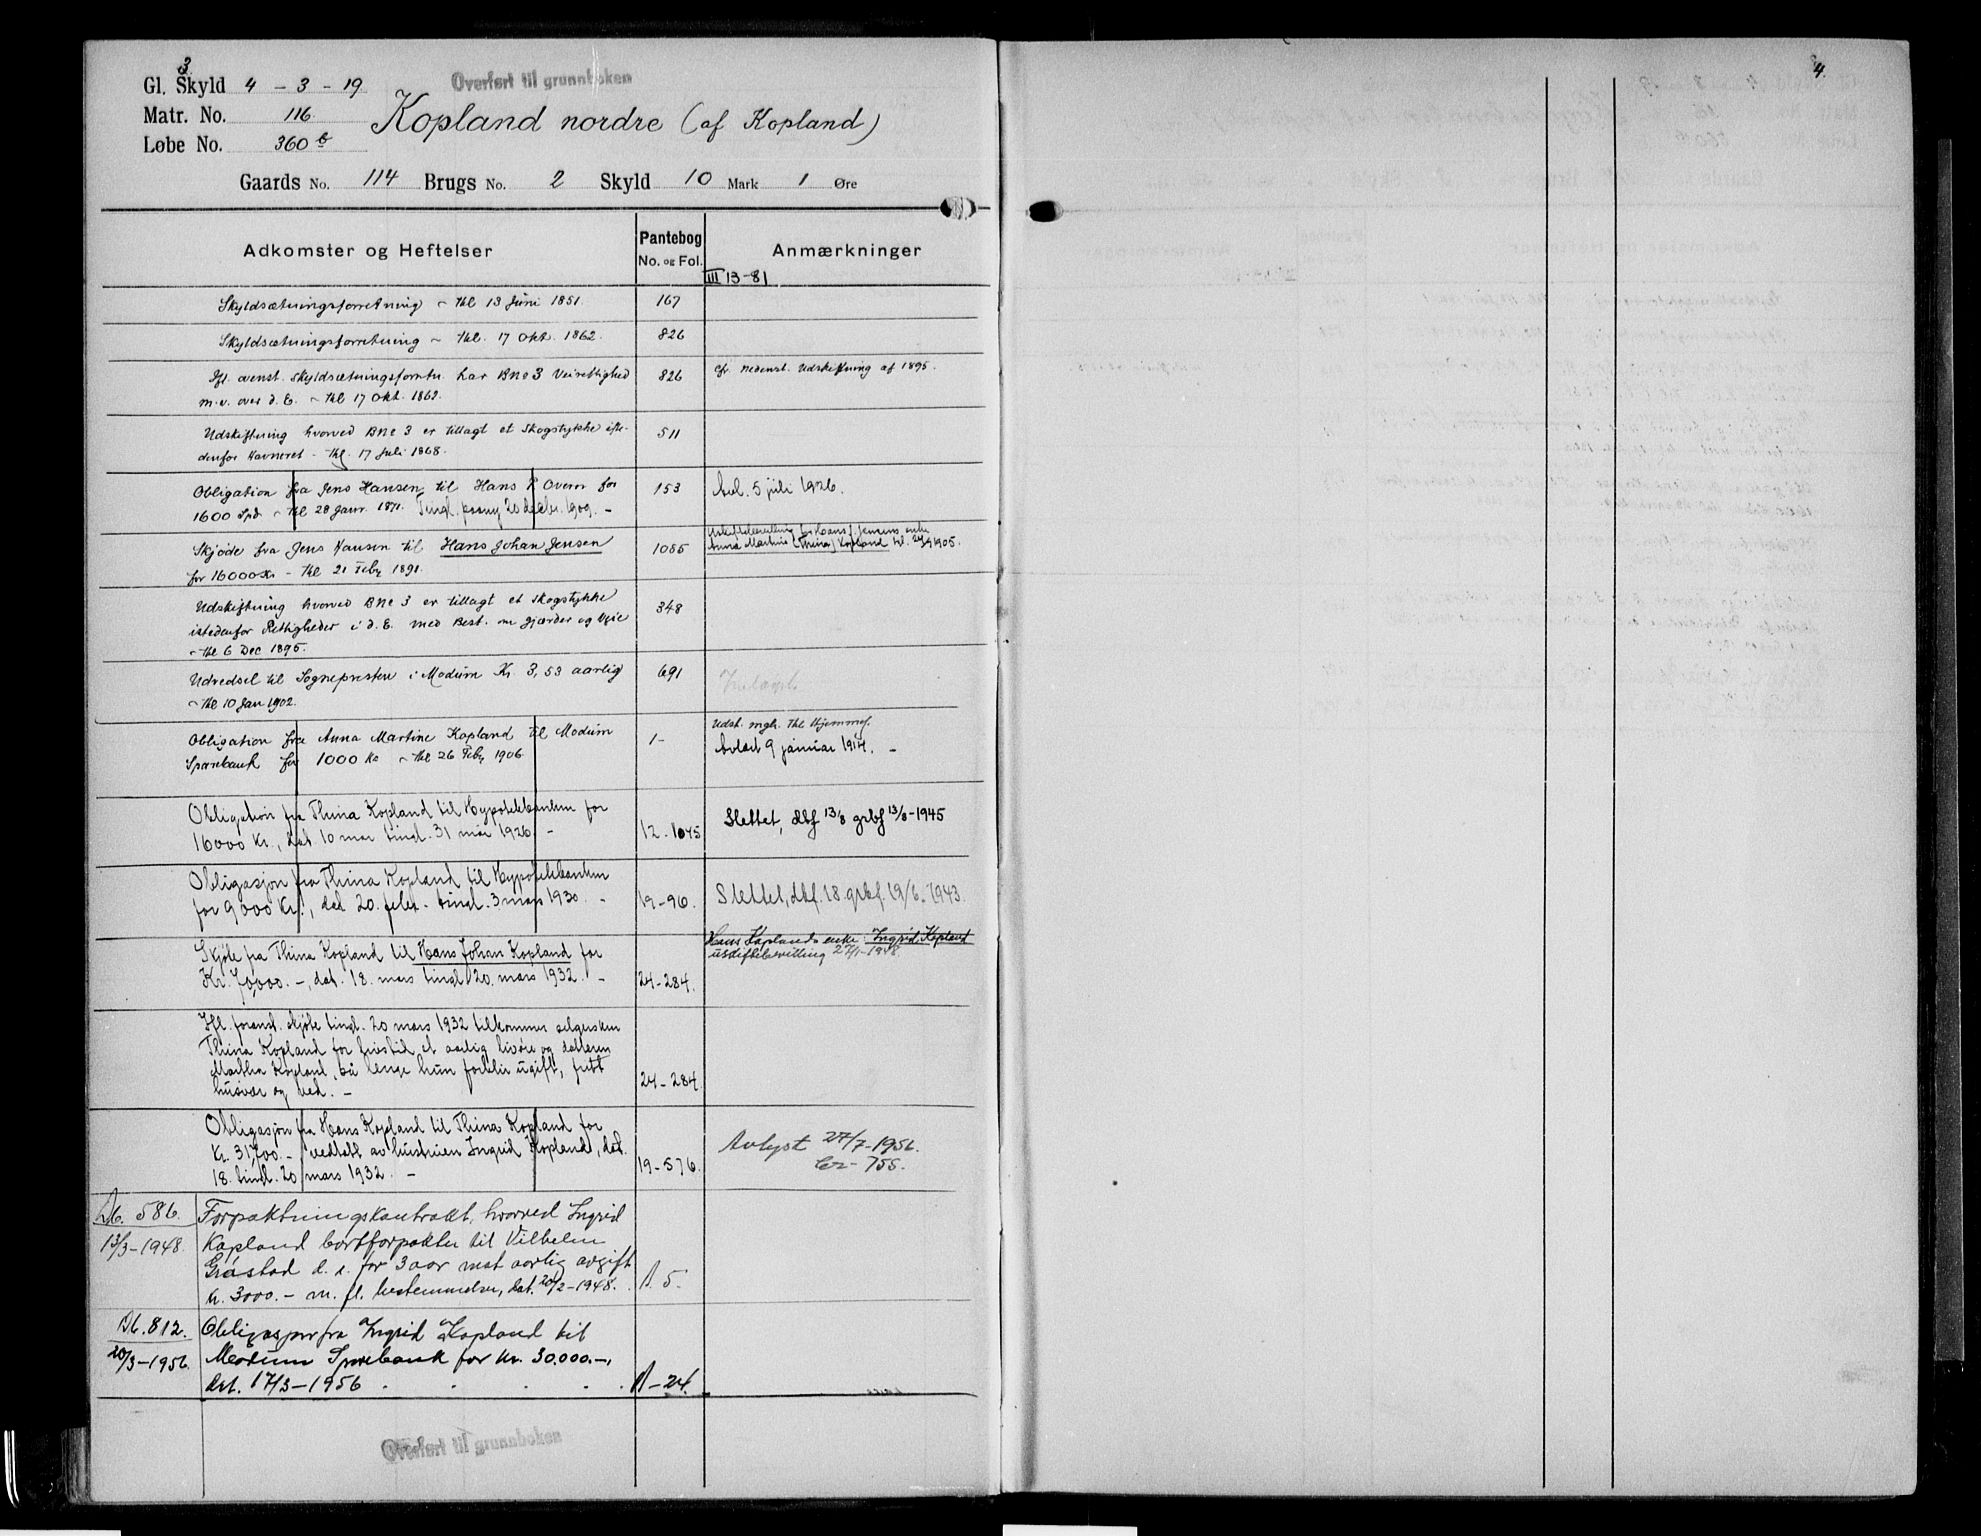 3
Gl. Skyld 4 - 3 - 19
Overført til grunnboken
Matr. No. 116
Kopland nordre (af Kopland)
Løbe No. 360 b
Gaards No. 114 Brugs No. 2 Skyld 10 Mark 1 Øre
Adkomster og Heftelser
Pantebog
No. og Fol.
Anmærkninger
III 13-81
Skyldsætningsforretning - thl 13 Juni 1851. 167
Skyldsætningsforretning - thl. 17 Okt. 1862. 826
Ifl. ovenst. Skyldsætningsforretn. har BNo 3 Veirettighed 826 cfr. nedenst. Udskiftning af 1895.
m.v. over d. E. - thl 17 Okt. 1862.
Udskiftning hvorved BNo 3 er tillagt et Skogstykke iste- 511
denfor Havneret - thl. 17 Juli 1868.
Obligation fra Jens Hansen til Hans P. Overn for 153 Avl. 5 juli 1926.
1600 Spd. - thl 28 Janr. 1871. Tingl. 20 decbr. 1909. -
Uskiftebevilling for Hans J. Jensens enke
Anna Martine (Thina) Kopland tl. 1905.
Skjøde fra Jens Hansen til Hans Johan Jensen 1085
for 16000 Kr - thl 21 Feby 1891.
Udskiftning hvorved BNo 3 er tillagt et Skogstykke 348
istedenfor Rettigheder i d. E. med Best. om gjærder og Veie
- thl 6 Dec 1895.
Udredsel til Sognepresten i Modum Kr. 3,53 aarlig 691
- thl 10 Jan 1902.
Obligation fra Anna Martine Kopland til Modum 1- Udst. mgl. thl Hjemmel.
Sparebank for 1000 Kr - thl 26 Feby 1906 Avlæst 9 januar 1914. -
Obligation fra Thina Kopland til Hypotekbanken for
16000 Kr., dat 10 mai tingl. 31 mai 1926. - 12-1045 Slettet, dbf 13/8 grbf 13/8-1945
Obligasjon fra Thina Kopland til Hypotekbanken
for 9000 Kr., dat 20. febr. tingl. 3 mars 1930. - 19-96. Slettet, dbf. 18. grbf. 19/6. 1943.
Skjøte fra Thina Kopland til Hans Johan Kopland for
Kr. 70,000.-, dat. 18. mars tingl 20. mars 1932. - 24-284.
Hans Koplands enke: Ingrid Kopland
uskiftebevilling 27/1-1948.
Ifl. foranst. skjøte tingl. 20 mars 1932 tilkommer selgersken
Thina Kopland for livstid et aarlig livøre og datteren
Martha Kopland, så lenge hun forblir ugift, fritt
husvær og ved. - 24-284.
Obligasjon fra Hans Kopland til Thina Kopland for
Kr. 31700.- vedtatt av hustruen Ingrid Kopland, dat.
18. tingl. 20 mars 1932. - 19-576. Avlyst 27/7-1956.
755.
Db. 586. Forpaktningskontrakt, hvorved Ingrid
13/3-1948. Kopland bortforpakter til Vilhelm
Gråstad d. e. for 3 aar mot aarlig avgift
kr. 3000.- m. fl. bestemmelser, dat. 20/2-1948. A. 5.
Db. 812. Obligasjon fra Ingrid Kopland til
20/3-1956. Modum Sparebank for kr. 30.000.-,
dat. 17/3-1956 A-24.
Overført til grunnboken
4.